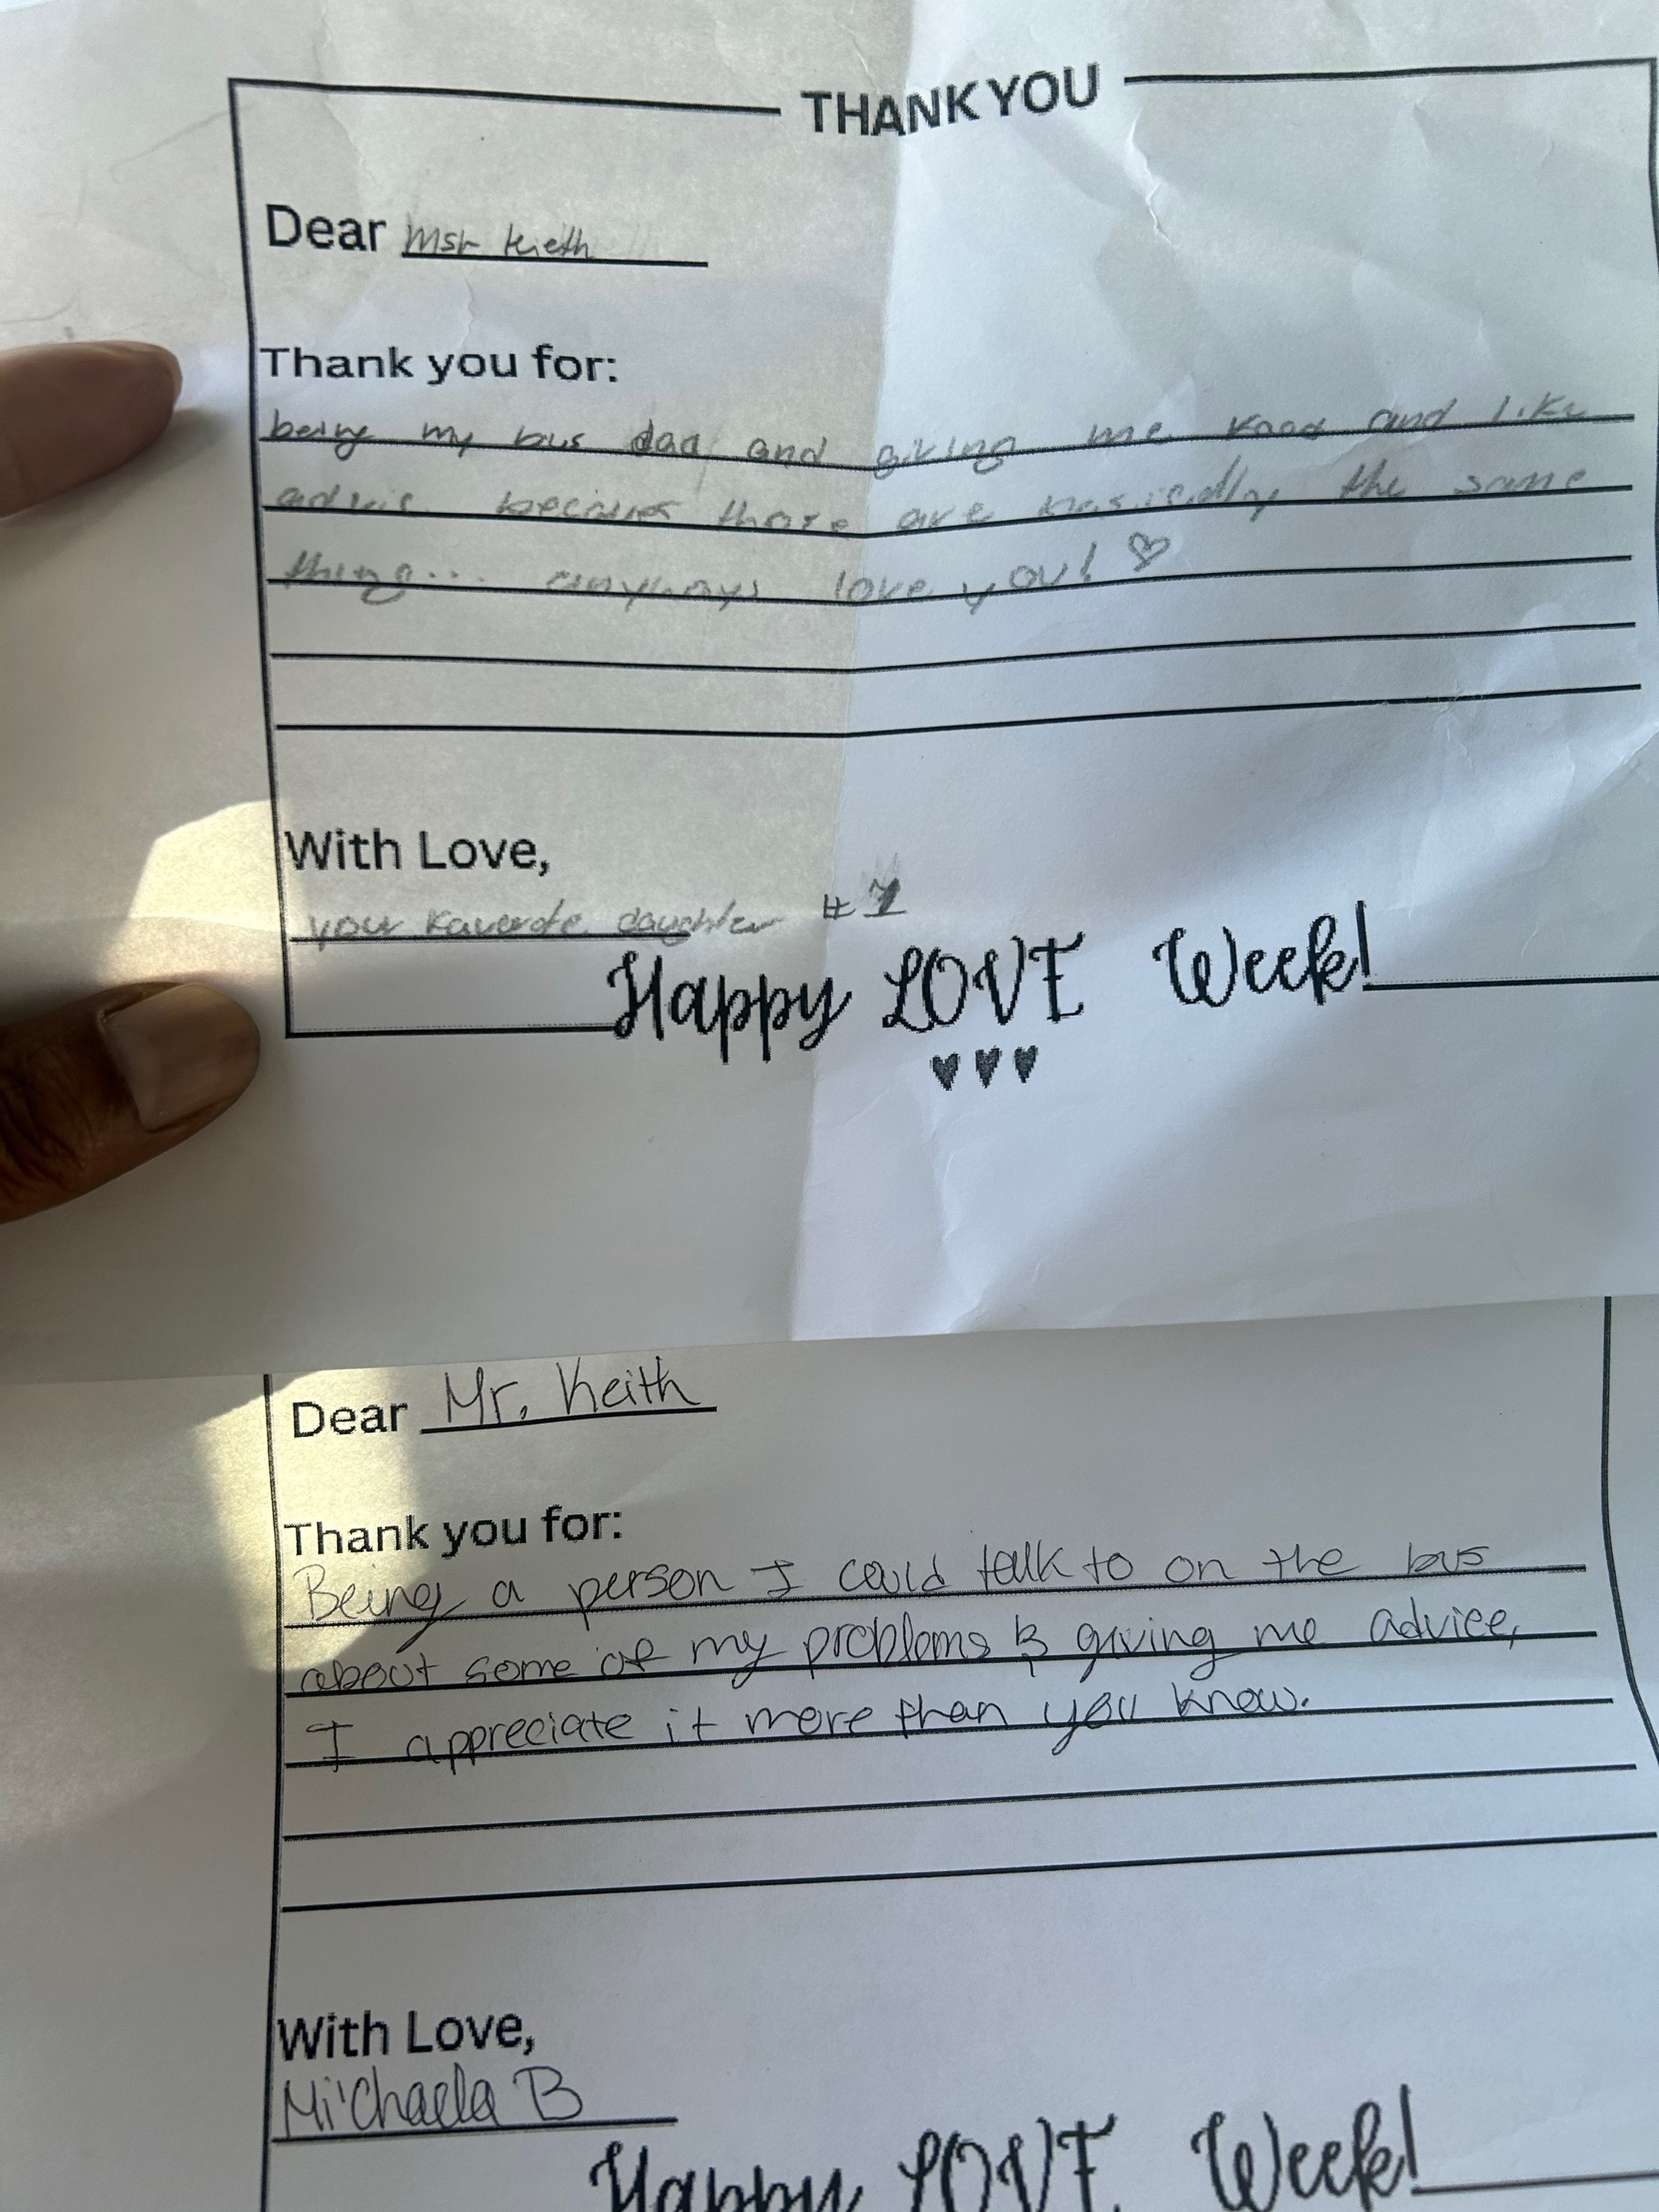 THANK YOU
Dear Msr Kieth
Thank you for:
being my bus dad and giving me food and life
advic because those are basically the same
thing... anyways love you! ♡
With Love,
your Faverote daughter #1
Happy LOVE Week!
♥♥♥
Dear Mr. Keith
Thank you for:
Being a person I could talk to on the bus
about some of my problems & giving me advice,
I appreciate it more than you know.
With Love,
Mi'Chaela B
Happy LOVE Week!